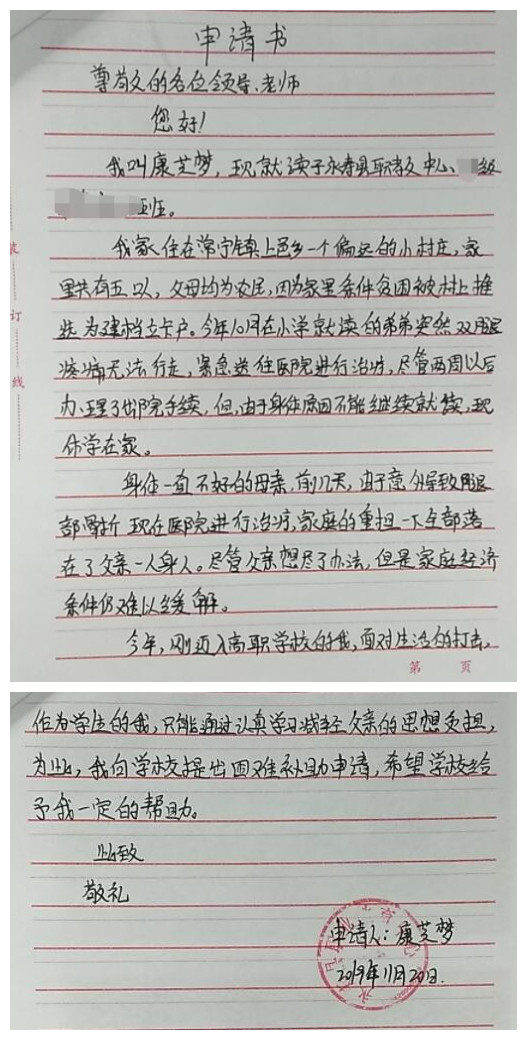 申请书
尊敬的各位领导、老师
您好!
我叫康芝梦，现就读于永寿县职教中心、级
班。
我家住在常宁镇上邑乡一个偏远的小村庄，家
里共有五口人，父母均为农民，因为家里条件贫困被村上推
选为建档立卡户。今年10月在小学就读的弟弟突然双腿
疼痛无法行走，紧急送往医院进行治疗，尽管两周以后
办理了出院手续，但，由于身体原因不能继续就读，现
休学在家。
身体一直不好的母亲，前几天，由于意外导致腿
部骨折 现在医院进行治疗，家庭的重担一下全部落
在了父亲一人身人。尽管父亲想尽了办法，但是家庭经济
条件仍难以缓解。
今年，刚迈入高职学校的我，面对生活的打击，
第 页
装
订
线
作为学生的我，只能通过认真学习减轻父亲的思想负担，
为此，我向学校提出困难补助申请，希望学校给
予我一定的帮助。
此致
敬礼
申请人：康芝梦
2019年11月20日.